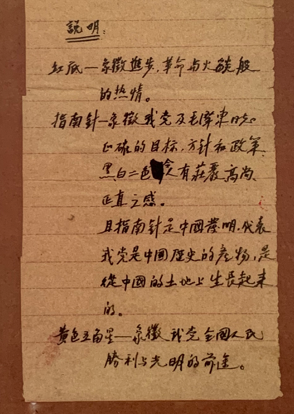 説明：
红底—象徵進步，革命与火龍般
的热情。
指南針—象徵我党及毛澤東的
正確的目标，方針和政策
黑白二色含有莊嚴高尚
正直之感。
且指南針是中國發明，代表
我党是中国歷史的產物，是
從中國的土地上生長起来
的。
黄色五角星—象徵我党全國人民
勝利与光明的前途。